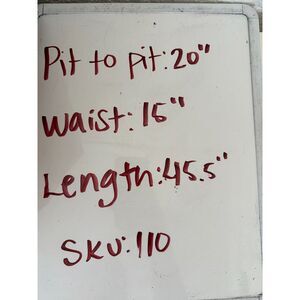 Pit to pit: 20"
Waist: 15"
Length: 45.5"
SKU: 110